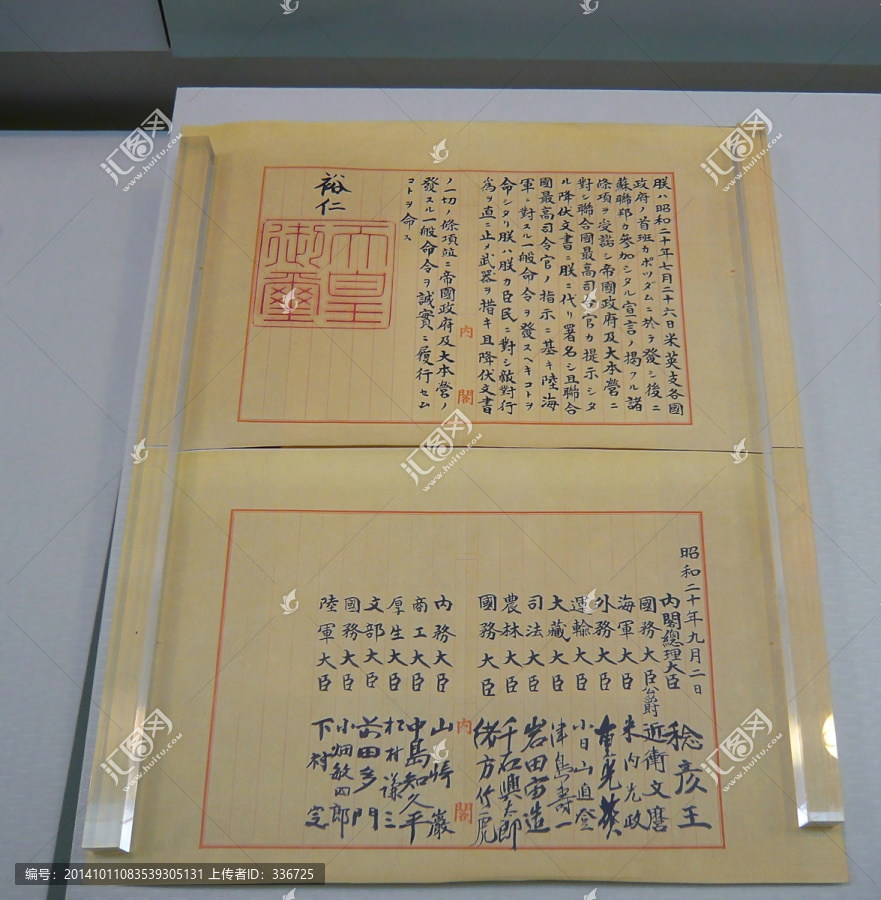 朕ハ昭和二十年七月二十六日米英支各國
政府ノ首班カポツダムニ於テ發シ後ニ
蘇聯邦カ參加シタル宣言ノ掲クル諸
條項ヲ受諾シ帝國政府及大本營ニ
對シ聯合國最高司令官カ提示シタ
ル降伏文書ニ朕ニ代リ署名シ且聯合
國最高司令官ノ指示ニ基キ陸海
軍ニ對スル一般命令ヲ發スヘキコトヲ
命シタリ朕ハ朕カ臣民ニ對シ敵對行
爲ヲ直ニ止メ武器ヲ措キ且降伏文書
ノ一切ノ條項竝ニ帝國政府及大本營ノ
發スル一般命令ヲ誠實ニ履行セム
コトヲ命ス
裕仁
天皇
御璽
内閣
昭和二十年九月二日
内閣總理大臣 稔彦王
國務大臣公爵 近衛文麿
海軍大臣 米内光政
外務大臣 重光葵
運輸大臣 小日山直登
大藏大臣 津島壽一
司法大臣 岩田宙造
農林大臣 千石興太郎
國務大臣 緒方竹虎
内閣
内務大臣 山崎巖
商工大臣 中島知久平
厚生大臣 松村謙三
文部大臣 前田多門
國務大臣 小畑敏四郎
陸軍大臣 下村定
汇图网
www.huitu.com
汇图网
www.huitu.com
汇图网
www.huitu.com
汇图网
www.huitu.com
汇图网
www.huitu.com
编号：20141011083539305131 上传者ID：336725